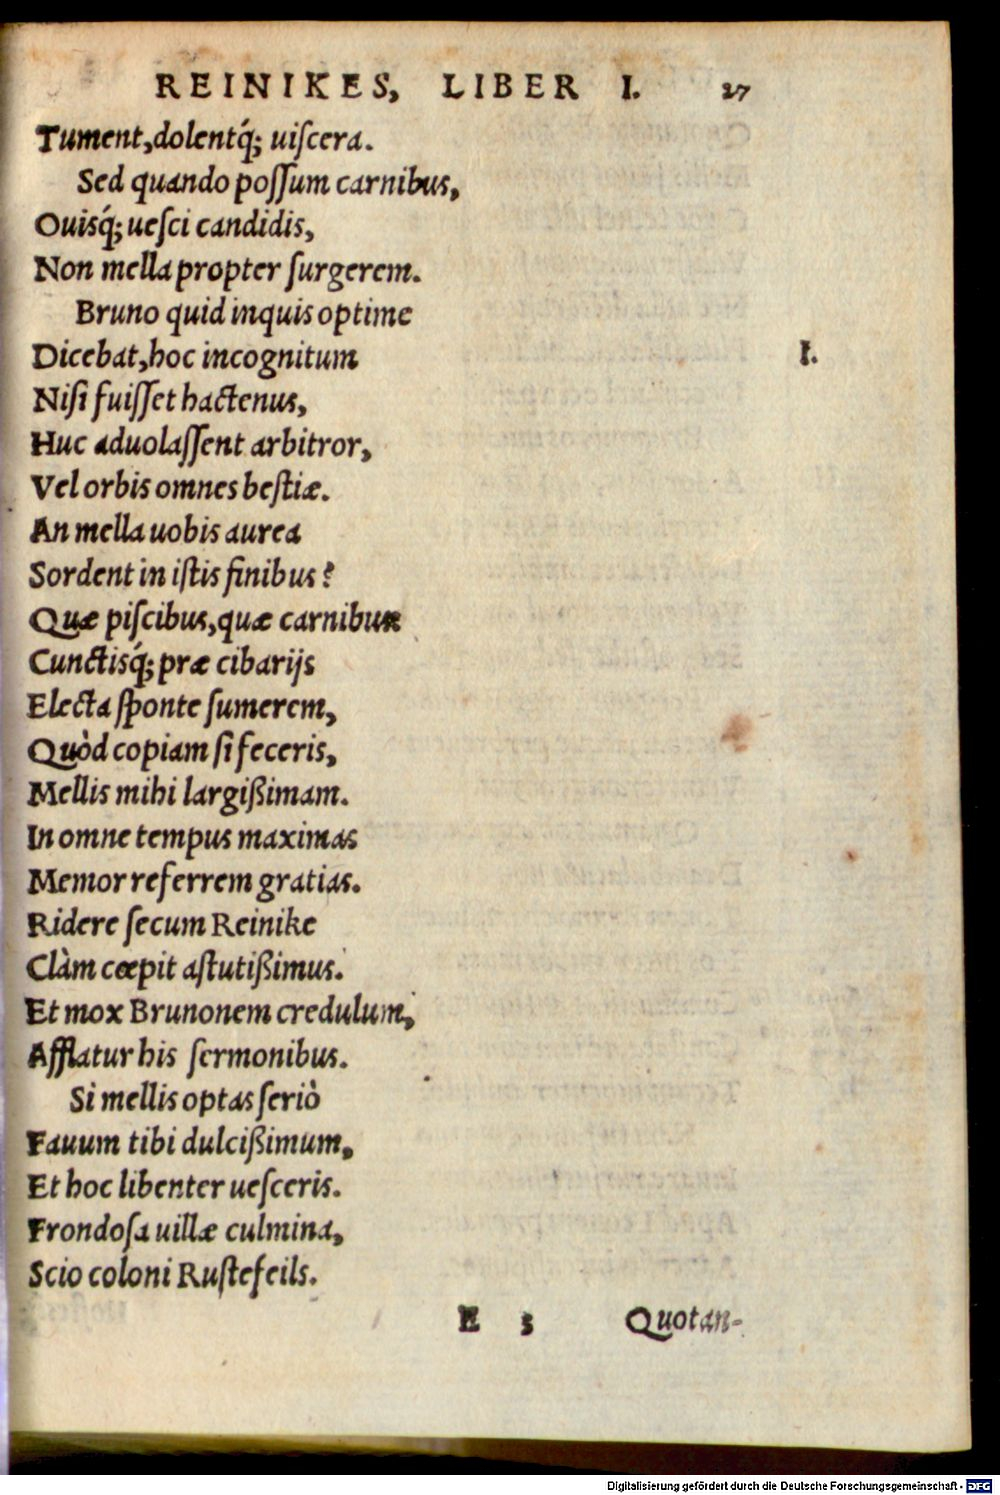 REINIKES, LIBER I. 27
Tument, dolentq́; uiſcera.
Sed quando poſſum carnibus,
Ouisq́; ueſci candidis,
Non mella propter ſurgerem.
Bruno quid inquis optime
Dicebat, hoc incognitum
I.
Niſi fuiſſet hactenus,
Huc aduolaſſent arbitror,
Vel orbis omnes beſtiæ.
An mella uobis aurea
Sordent in iſtis finibus?
Quæ piſcibus, quæ carnibus
Cunctisq́; præ cibarijs
Electa ſponte ſumerem,
Quòd copiam ſi feceris,
Mellis mihi largißimam.
In omne tempus maximas
Memor referrem gratias.
Ridere ſecum Reinike
Clàm cœpit aſtutißimus.
Et mox Brunonem credulum,
Afflatur his ſermonibus.
Si mellis optas ſeriò
Fauum tibi dulcißimum,
Et hoc libenter ueſceris.
Frondoſa uillæ culmina,
Scio coloni Ruſtefeils.
E 3 Quotan-
Digitalisierung gefördert durch die Deutsche Forschungsgemeinschaft - DFG